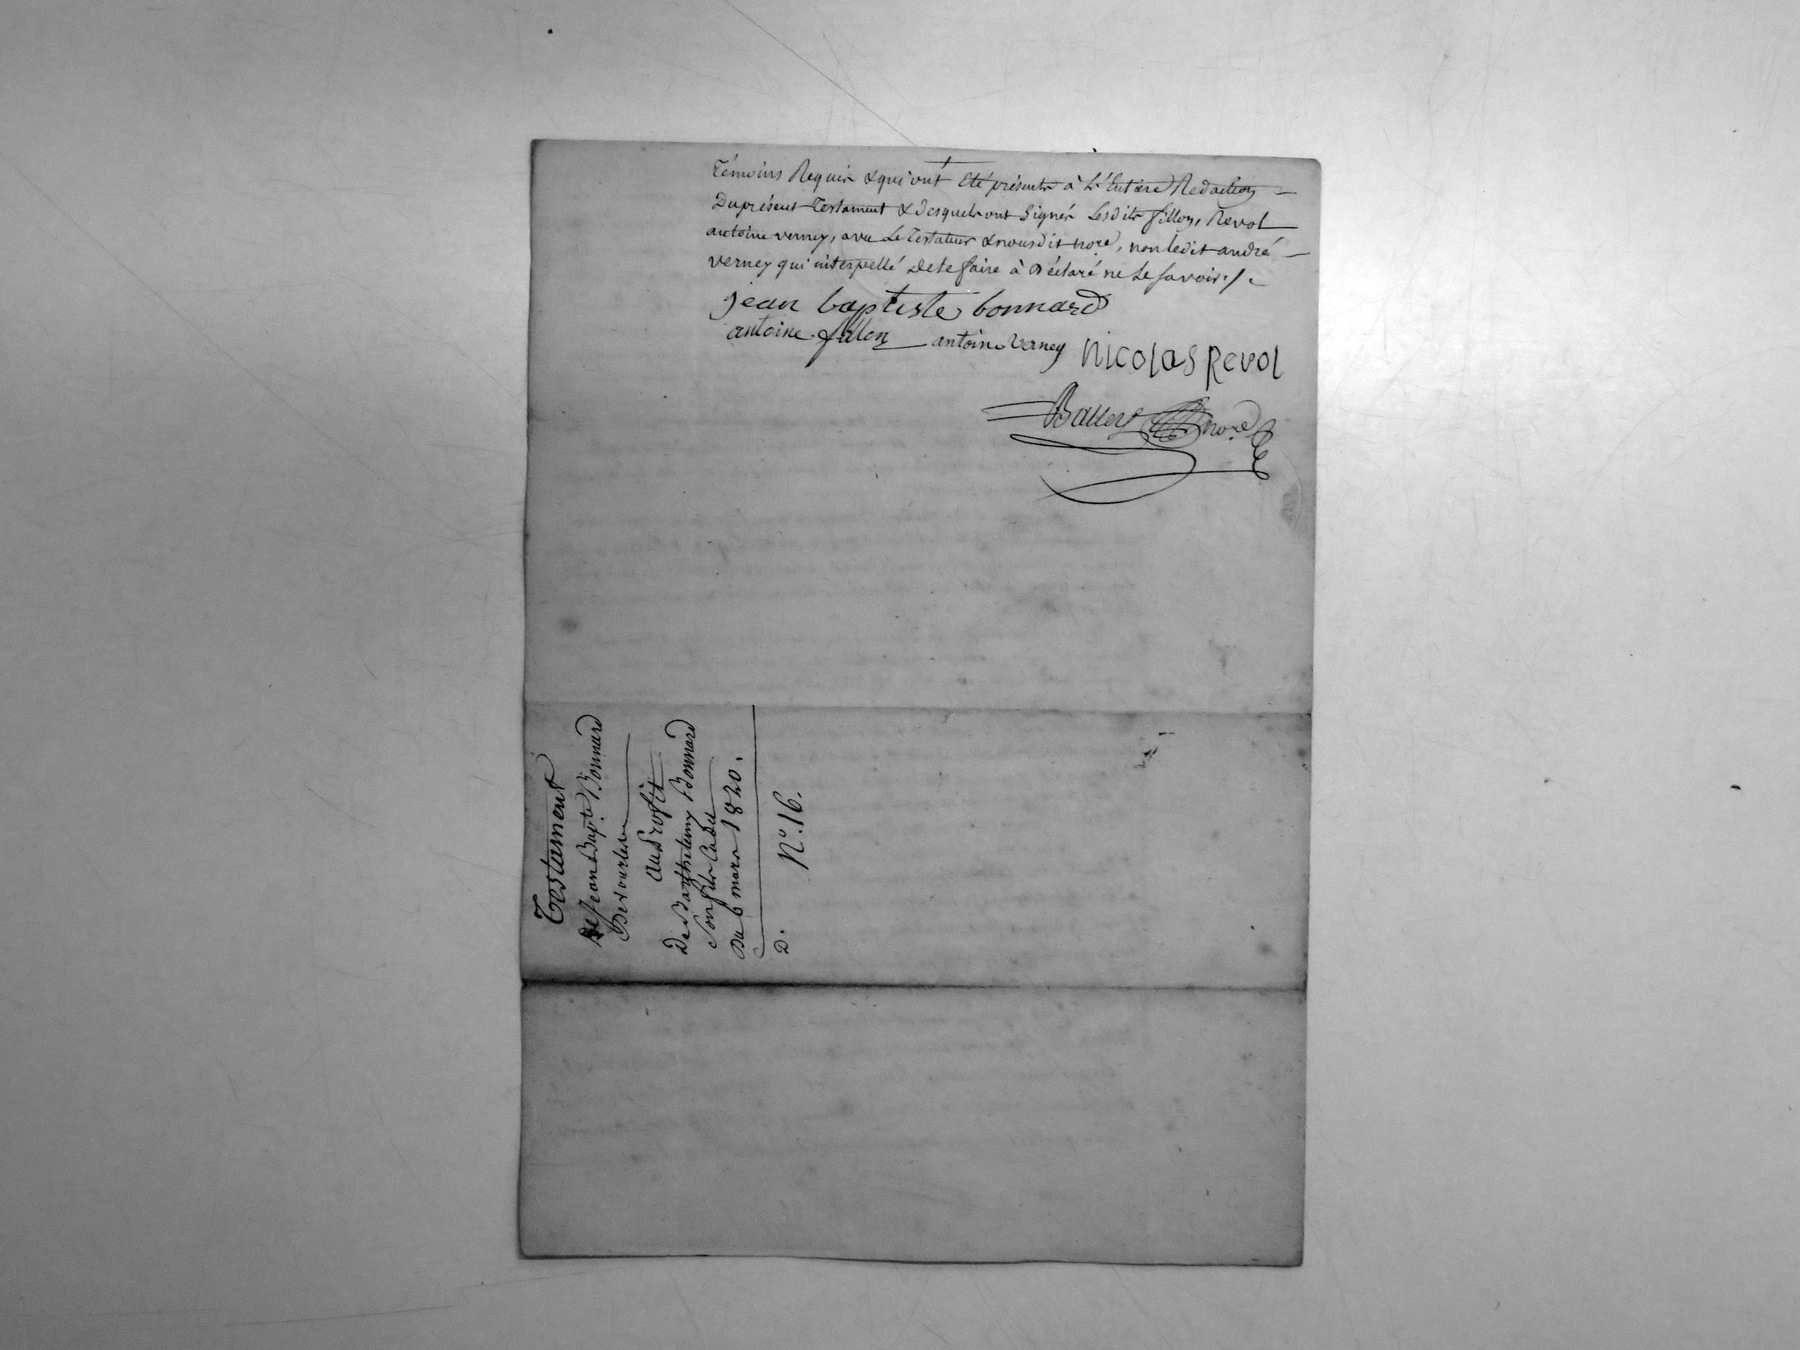 témoins Requis & qui ont été présents à L'Entière Redaction
Du présent Testament & Desquels ont signés Lesdits fillon, Revol
antoine verney, avec Le Testateur & nousdit nore, non ledit andré
verney qui interpellé de le faire à déclaré ne le savoir./.
jean baptiste bonnard
antoine fillon antoine verney nicolas Revol
nore
Testament
de Jean Bapte Bonnard
au Profit
De Barthelemy Bonnard
son fils Cadet
Du 6 mars 1820.
D. No. 16.